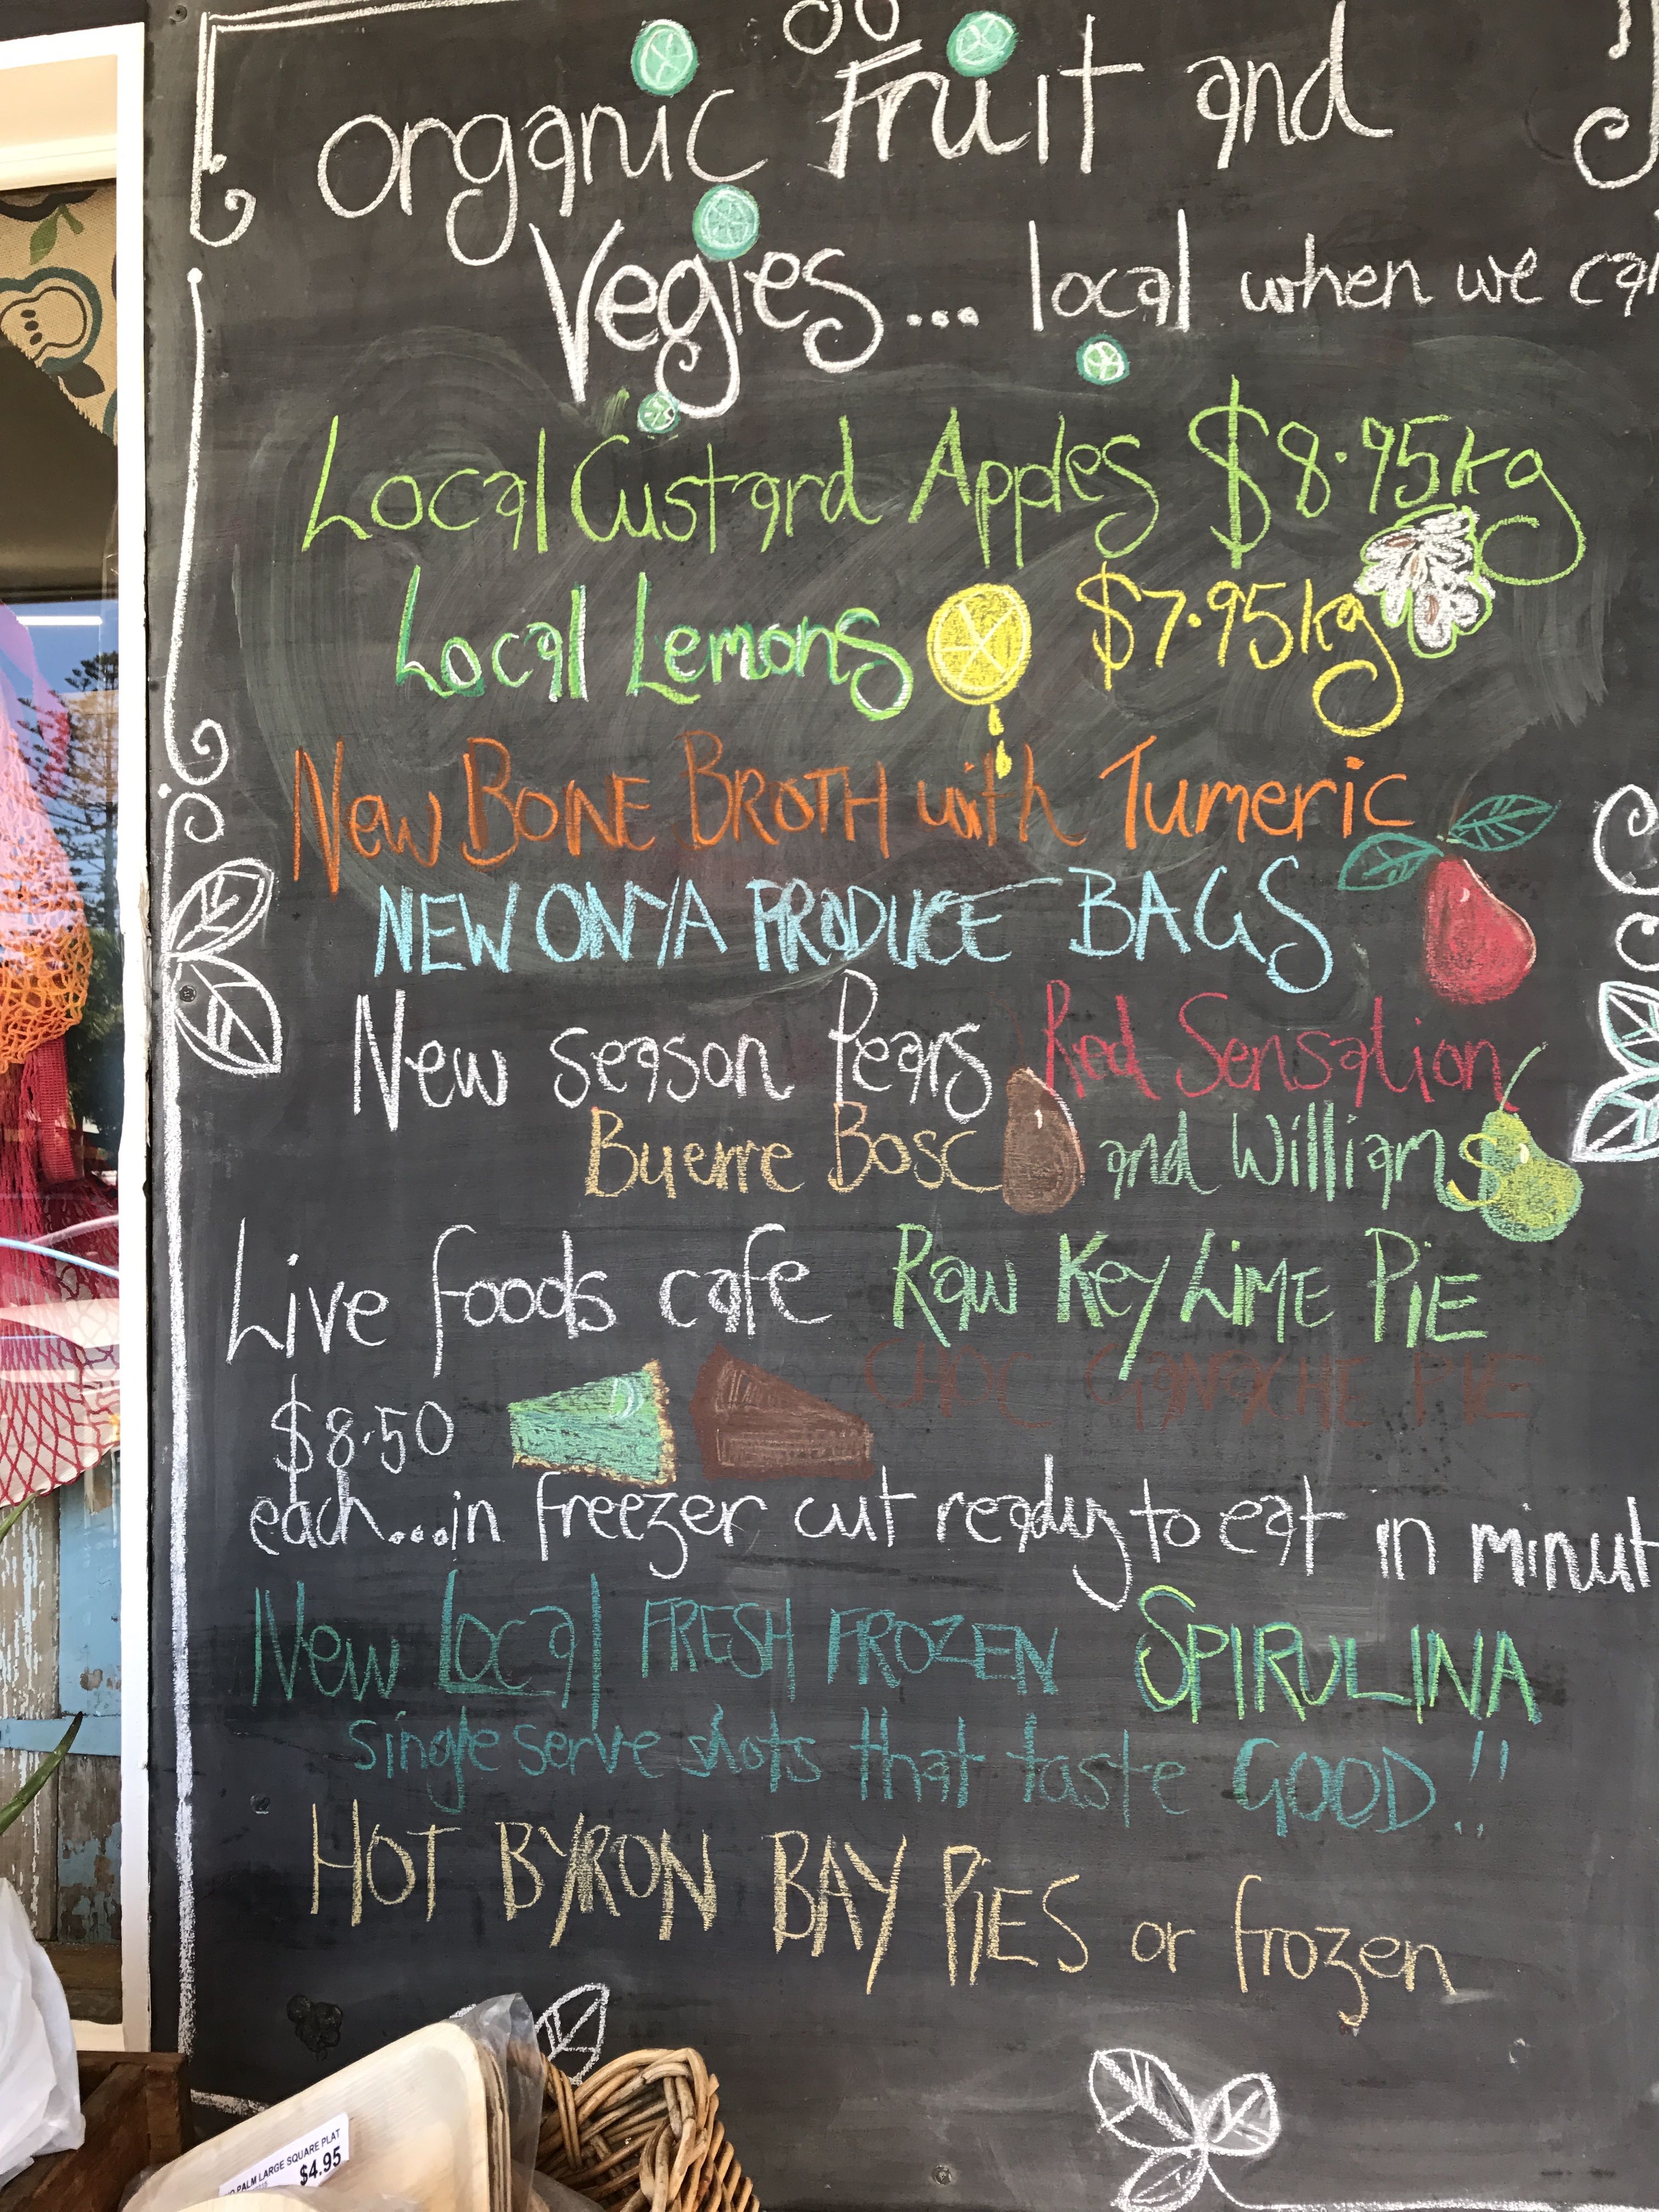 organic Fruit and
Vegies... local when we can
Local Custard Apples $8.95kg
Local Lemons $7.95kg
New BONE BROTH with Tumeric
NEW ONYA PRODUCE BAGS
New season Pears Red Sensation
Buerre Bosc and Williams
Live foods cafe Raw Key LIME PiE
CHOC GANACHE PIE
$8.50
each...in freezer cut ready to eat in minut
New Local FRESH FROZEN SPIRULINA
single serve shots that taste GOOD!!
HOT BYRON BAY PiES or frozen
PALM LARGE SQUARE PLAT
$4.95